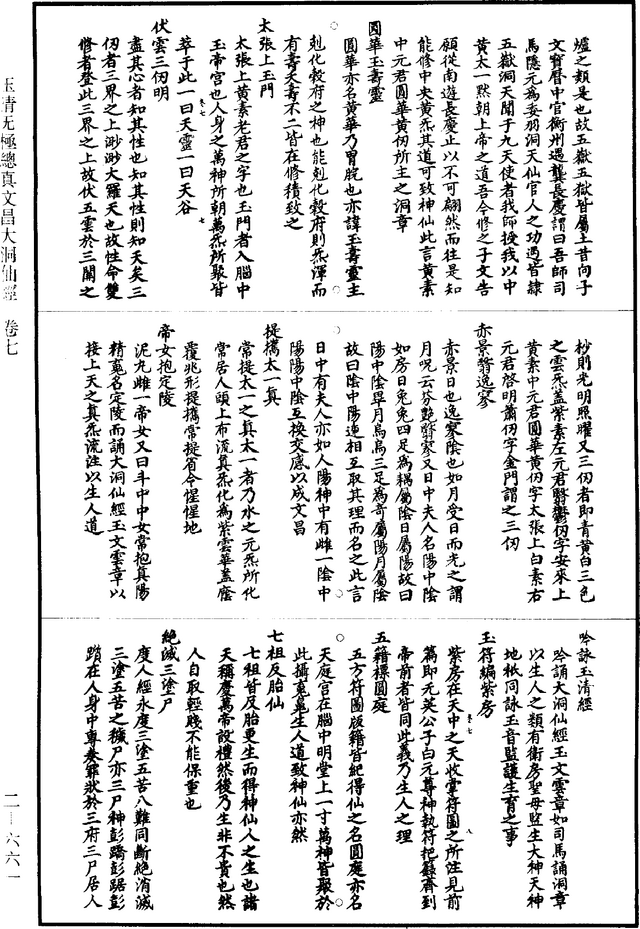 玉清无極總真文昌大洞仙經 卷七
二—六六一
爐之類是也故五嶽五獄皆屬土昔向子
文寳曆中官衡州遇龔長慶謂曰吾師司
馬隱元為委羽洞天仙官人之功過皆隸
五嶽洞天聞于九天使者我師授我以中
黃太一黙朝上帝之道吾今修之子文告
願從南遊長慶止以不可翩然而往是知
能修中央黃炁其道可致神仙此言黃素
中元君圓華黃仞所主之洞章
圓華玉壽靈
圓華亦名黃華乃胃脘也亦諱玉壽靈主
剋化穀府之神也能剋化穀府則炁渾而
有壽夭壽不二皆在修積致之
太張上玉門
太張上黃素老君之字也玉門者入腦中
玉帝宮也人身之萬神所朝萬炁所聚皆
萃于此一曰天靈一曰天谷
卷七
七
伏雲三仞明
盡其心者知其性也知其性則知天矣三
仞者三界之上渺渺大羅天也故性命雙
修者登此三界之上故伏五雲於三關之
杪則光明照曜又三仞者即青黃白三色
之雲炁蓋紫素左元君翳鬱仞字安來上
黃素中元君圓華黃仞字太張上白素右
元君啓明蕭仞字金門謂之三仞
赤景翳逸寥
赤景日也逸寥陰也如月受日而光之謂
月呪云芬艶翳寥又日中夫人名陽中陰
如房日兔兔四足為耦屬陰日屬陽故曰
陽中陰畢月烏烏三足為奇屬陽月屬陰
故曰陰中陽遞相互取其理而名之此言
日中有夫人亦如人陽神中有雌一陰中
陽陽中陰互換交感以成文昌
提攜太一真
常提太一之真太一者乃水之元炁所化
常居人頭上布流真炁化為紫雲華蓋廕
覆兆形提攜常提省令惺惺地
帝女抱定陵
泥九雌一帝女又曰斗中中女常抱真陽
精䰟名定陵而誦大洞仙經玉文雲章以
接上天之真炁流注以生人道
吟詠玉清經
吟誦大洞仙經玉文雲章如司馬誦洞章
以生人之類有衛房聖母監生大神天神
地祇同詠玉音監護生育之事
玉符編紫房
卷七
八
紫房在天中之天收掌符圖之所注見前
篇即元英公子白元尊神執符把籙齎到
帝前者皆同此義乃生人之理
五籍標圓庭
五方符圖版籍皆紀得仙之名圓庭亦名
天庭宮在腦中明堂上一寸萬神皆聚於
此攝䰟魄生人道致神仙亦然
七祖反胎仙
七祖皆反胎更生而得神仙人之生也諸
天稱慶萬帝設禮然後乃生非不貴也然
人自取輕賤不能保重也
絕滅三塗尸
度人經永度三塗五苦八難同斷絕消滅
三塗五苦之穢尸亦三尸神彭躋彭踞彭
躓在人身中專奏罪狀於三府三尸居人